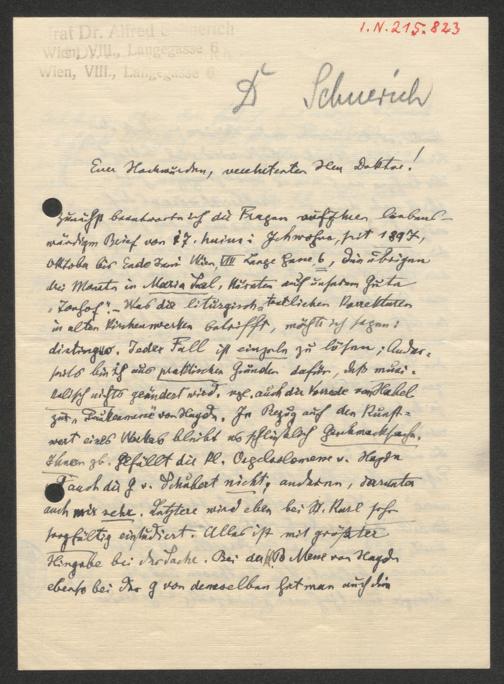 I.N. 215.823
Hofrat Dr. Alfred Schnerich
Wien, VIII., Langegasse 6
Wien, VIII., Langegasse 6
Dr Schnerich
Euer Hochwürden, verehrtester Herr Doktor!
Zunächst beantworte ich die Fragen
würdigen Brief von 17. : Ich wohne, seit 1897,
Oktober bis Ende Juni Wien VIII Lange Gasse 6, die übrigen
drei Monate in Maria Saal, Kärnten auf unserem Gute
„Tonhof". – Was die liturgisch-textlichen Korrekturen
in alten Kirchenwerken betrifft, möchte ich sagen:
distinguo. Jeder Fall ist einzeln zu lösen; Ander-
seits bin ich aus praktischen Gründen dafür, daß musi-
kalisch nichts geändert wird, vgl. auch die Vorrede von Habel
zur Paukenmesse von Haydn. In Bezug auf den Kunst-
wert eines Werkes bleibt es schließlich Geschmacksache.
Ihnen zb. gefällt die kl. Orgelsolomesse v. Haydn
auch die G v. Schubert nicht, anderen, darunter
auch mir sehr. Letztere wird eben bei St. Karl sehr
sorgfältig einstudiert. Alles ist mit größter
Hingabe bei der Sache. Bei der B Messe von Haydn
ebenso bei der G von demselben hat man auch den